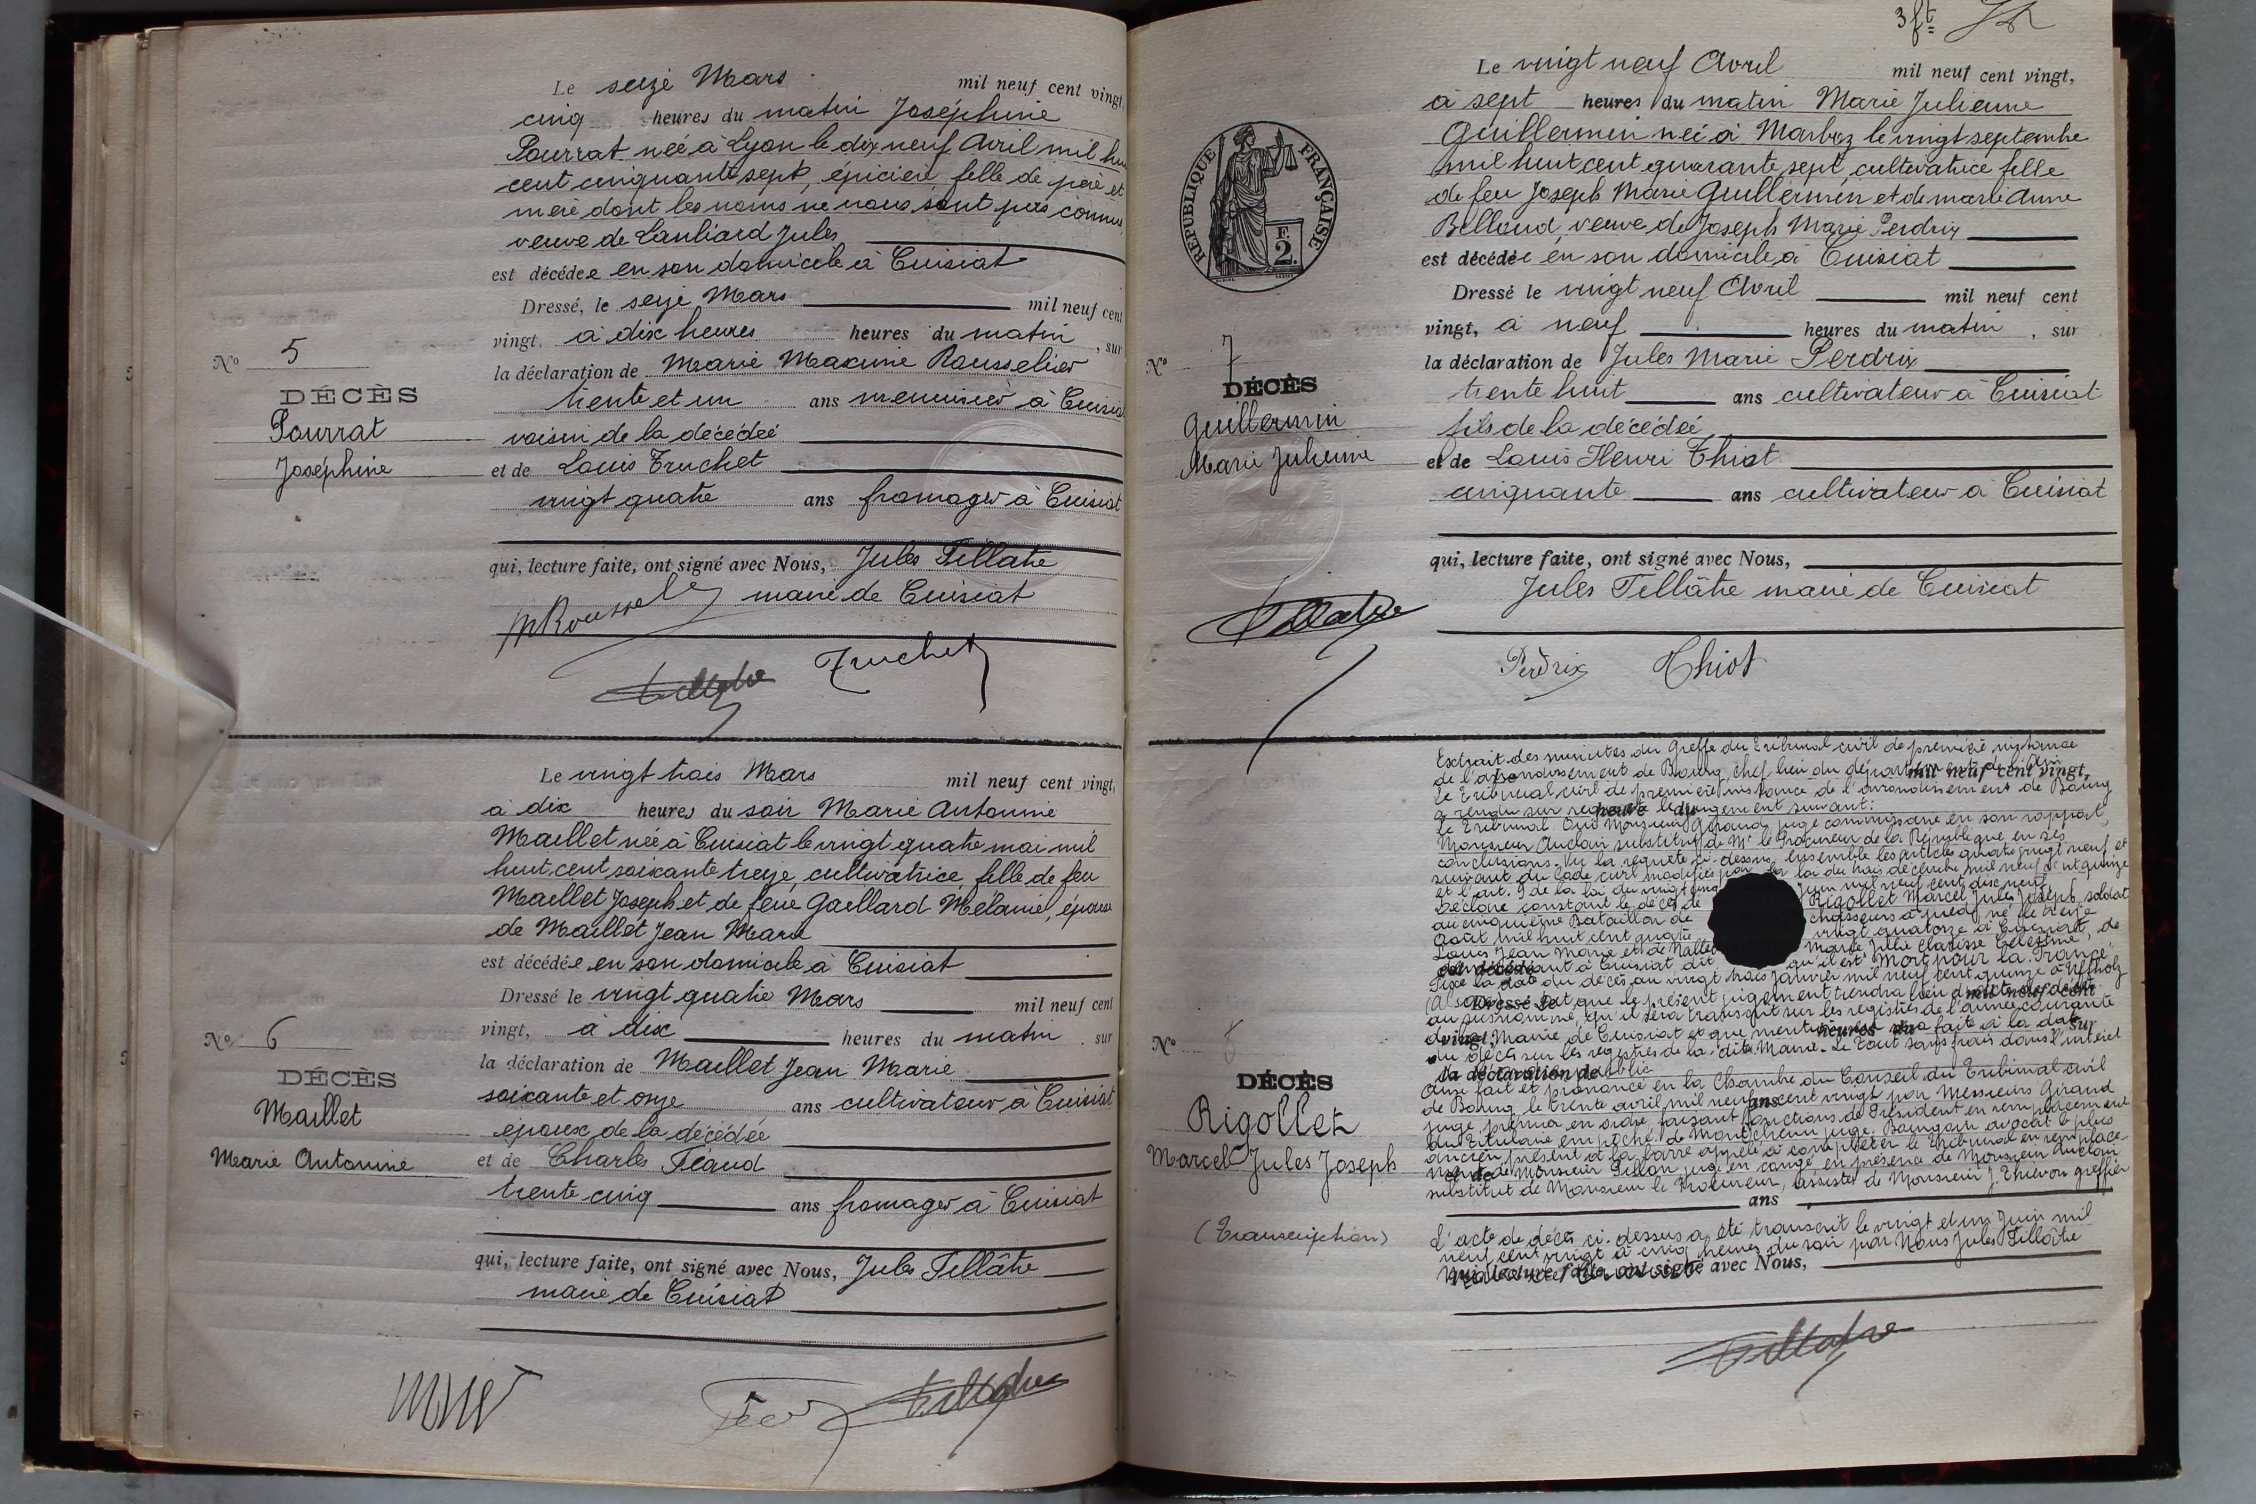 Le seize Mars mil neuf cent vingt,
cinq heures du matin Joséphine
Pourrat née à Lyon le dix neuf Avril mil hui
cent cinquante sept, épicière, fille de père et
mère dont les noms ne nous sont pas connus
veuve de Lanliard Jules
est décédée en son domicile à Cuisiat
Dressé, le seize Mars mil neuf cent
vingt, à dix heures heures du matin, sur
la déclaration de Marie Maxime Rousselier
trente et un ans menuisier à Cuisiat
voisin de la décédée
et de Louis Truchet
vingt quatre ans fromager à Cuisiat
qui, lecture faite, ont signé avec Nous, Jules Tillâtre
maire de Cuisiat
Truchet
Tillatre
No 5
DÉCÈS
Pourrat
Joséphine
Le vingt trois Mars mil neuf cent vingt,
à dix heures du soir Marie Antonine
Maillet née à Cuisiat le vingt quatre mai mil
huit cent soixante treize, cultivatrice, fille de feu
Maillet Joseph et de feue Gaillard Mélanie, épouse
de Maillet Jean Marie
est décédée en son domicile à Cuisiat
Dressé le vingt quatre Mars mil neuf cent
vingt, à dix heures du matin, sur
la déclaration de Maillet Jean Marie
soixante et onze ans cultivateur à Cuisiat
époux de la décédée
et de Charles Féaud
trente cinq ans fromager à Cuisiat
qui, lecture faite, ont signé avec Nous, Jules Tillâtre
maire de Cuisiat
Tillatre
No 6
DÉCÈS
Maillet
Marie Antonine
3 ft
Le vingt neuf Avril mil neuf cent vingt,
à sept heures du matin Marie Julienne
Guillermin née à Marboz le vingt septembre
mil huit cent quarante sept, cultivatrice fille
de feu Joseph Marie Guillermin et de marie Anne
Belloud, veuve de Joseph Marie Perdrix
est décédée en son domicile à Cuisiat
Dressé le vingt neuf Avril mil neuf cent
vingt, à neuf heures du matin, sur
la déclaration de Jules Marie Perdrix
trente huit ans cultivateur à Cuisiat
fils de la décédée
et de Louis Henri Thiot
cinquante ans cultivateur à Cuisiat
qui, lecture faite, ont signé avec Nous,
Jules Tillâtre maire de Cuisiat
Tillatre
Perdrix Thiot
RÉPUBLIQUE FRANÇAISE
F.
2.
No 7
DÉCÈS
Guillermin
Marie Julienne
Extrait des minutes du Greffe du Tribunal civil de première instance
de l'arrondissement de Bourg, chef lieu du département de l'Ain
mil neuf cent vingt,
Le Tribunal civil de première instance de l'arrondissement de Bourg
a rendu sur requête le jugement suivant:
heures du
Le Tribunal. Ouï Monsieur Giraud, juge commissaire en son rapport,
Monsieur Auclair substitut de Mr le Procureur de la République en ses
conclusions. Vu la requête ci-dessus, ensemble les articles quatre vingt neuf et
suivant du Code civil modifiés par la loi du trois décembre mil neuf cent quinze
et l'art. 9 de la loi du vingt cinq Juin mil neuf cent dix neuf,
Déclare constant le décès de Rigollet Marcel Jules Joseph, soldat
au cinquième Bataillon de chasseurs à pied, né le treize
Août mil huit cent quatre vingt quatorze à Cuisiat, de
Louis Jean Marie et de Marie Julie Clarisse Célestine,
à Cuisiat dit qu'il est Mort pour la France
Fixe la date du décès au vingt trois Janvier mil neuf cent quinze à Uffholz
(Alsace) Dit que le présent jugement tiendra lieu d'acte de décès
Dressé le mil neuf cent
au susnommé, qu'il sera transcrit sur les registres de l'année courante
de la Mairie de Cuisiat et que mention en sera faite à la date
vingt, heures du sur
du décès sur les registres de la dite Mairie. Le tout sans frais dans l'intérêt
public
la déclaration de
Ainsi fait et prononcé en la Chambre du Conseil du Tribunal civil
de Bourg le trente avril mil neuf cent vingt par Messieurs Giraud
ans
juge premier en ordre faisant fonctions de Président en remplacement
du Titulaire empêché, de Montchenu juge, Baingoin avocat le plus
ancien présent à la barre appelé à compléter le Tribunal en remplace-
ment de Monsieur Pillon juge en congé, en présence de Monsieur Auclair
et de
substitut de Monsieur le Procureur, assistés de Monsieur J. Thévenon greffier
ans
L'acte de décès ci-dessus a été transcrit le vingt et un Juin mil
neuf cent vingt à cinq heures du soir par Nous Jules Tillâtre
Maire de Cuisiat
qui, lecture faite, ont signé avec Nous,
Tillatre
No 8
DÉCÈS
Rigollet
Marcel Jules Joseph
(Transcription)